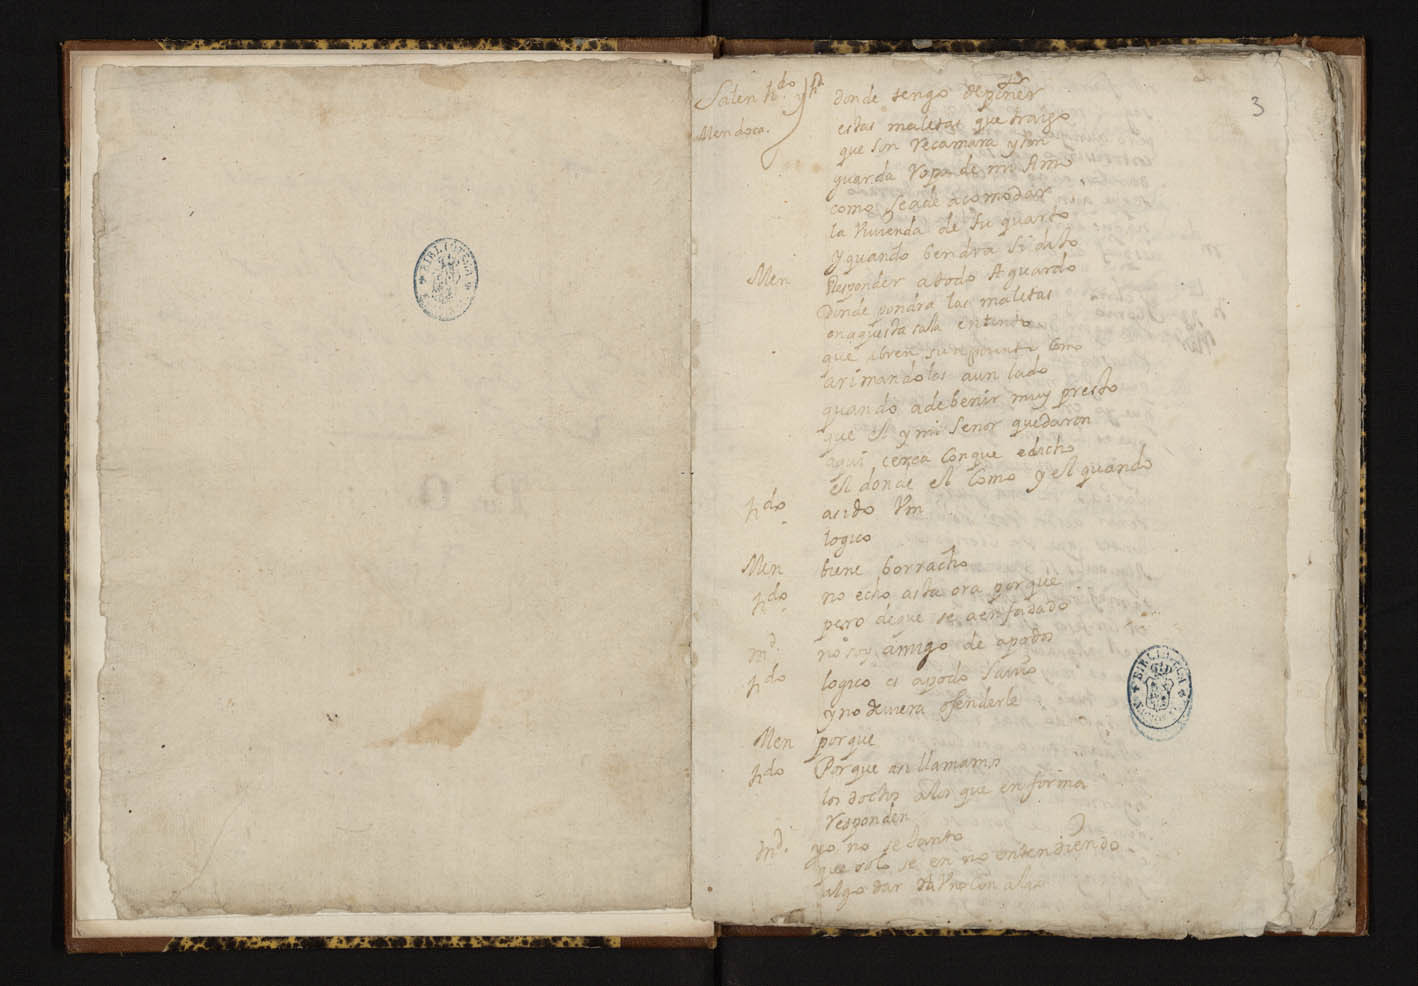 BIBLIOTECA
3
Salen h.do y
Mendoça.
h.do donde tengo de poner
estas maletas que traigo
que son Recamara y son
guarda Ropa de mi Amo
como seade acomodar
la Vivienda de su quarto
y quando bendra
Men Responder atodo Aguardo
donde pondra las maletas
en aquesta sala entanto
que abren su como
arimandolas aun lado
quando adebenir muy presto
que el y mi Señor quedaron
aqui cerca Conque edicho
el donde el Como y el quando
h.do asido Vm
logico
Men biene borracho
h.do no echo asta ora porque
pero deque se aenfadado
m.d no soy amigo de apodos
h.do logico es apodo
y no deuiera ofenderle
Men porque
h.do Porque asi llamamos
los doctos alos que en forma
Responden
m.d yo no se tanto
que solo se en no entendiendo
algo dar con algo
BIBLIOTECA